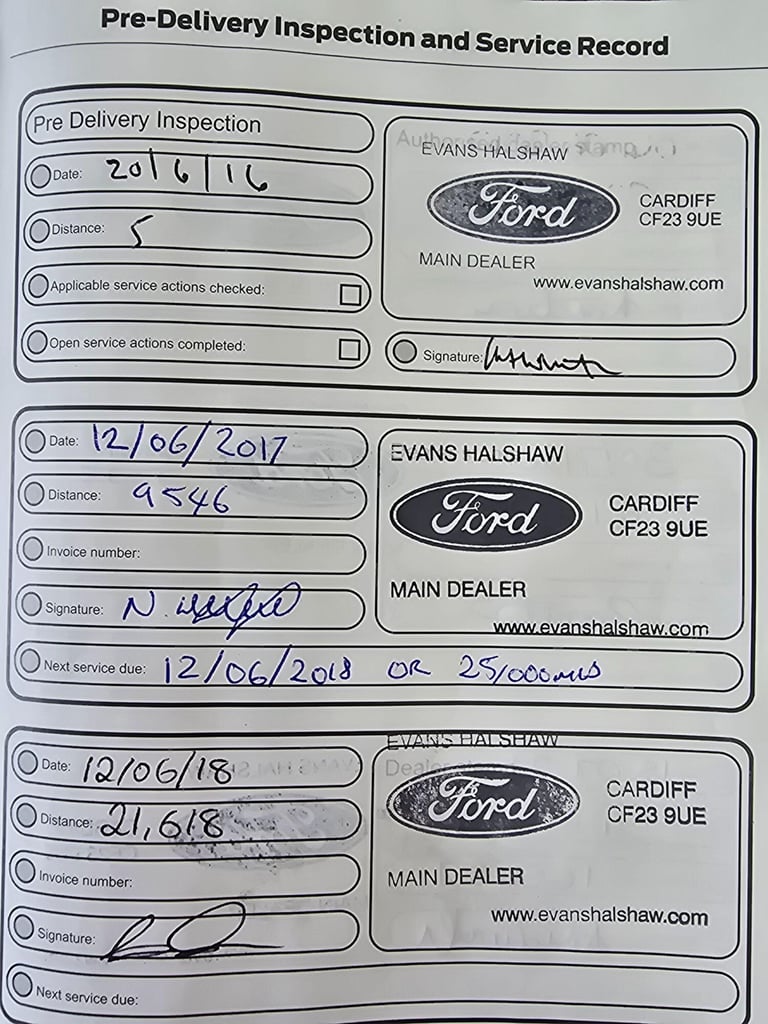 Pre-Delivery Inspection and Service Record
Pre Delivery Inspection
Date: 20/6/16
Distance: 5
Applicable service actions checked:
Open service actions completed:
Authorised dealer stamp
EVANS HALSHAW
Ford
CARDIFF
CF23 9UE
MAIN DEALER
www.evanshalshaw.com
Signature:
Date: 12/06/2017
Distance: 9546
Invoice number:
Signature: N.
Next service due: 12/06/2018 OR 25,000 MLS
EVANS HALSHAW
Ford
CARDIFF
CF23 9UE
MAIN DEALER
www.evanshalshaw.com
Date: 12/06/18
Distance: 21,618
Invoice number:
Signature:
Next service due:
EVANS HALSHAW
Dealer
Ford
CARDIFF
CF23 9UE
MAIN DEALER
www.evanshalshaw.com